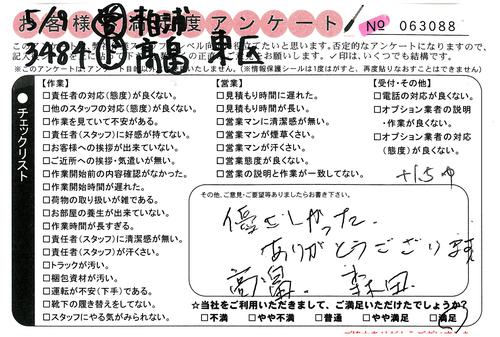 お客様満足度アンケート No 063088
5/9 相浦
3484 高畠 東区
チェックリスト
【作業】
□責任者の対応(態度)が良くない。
□他のスタッフの対応(態度)が良くない。
□作業を見ていて不安がある。
□責任者(スタッフ)に好感が持てない。
□お客様への挨拶が出来ていない。
□ご近所への挨拶・気遣いが無い。
□作業開始前の内容確認がなかった。
□作業開始時間が遅れた。
□荷物の取り扱いが雑である。
□お部屋の養生が出来ていない。
□作業時間が長すぎる。
□責任者(スタッフ)に清潔感が無い。
□責任者(スタッフ)が汗くさい。
□トラックが汚い。
□梱包資材が汚い。
□運転が不安(下手)である。
□靴下の履き替えをしてない。
□スタッフにやる気がみられない。
【営業】
□見積もり時間に遅れた。
□見積もり時間が長い。
□営業マンに清潔感が無い。
□営業マンが煙草くさい。
□営業マンが汗くさい。
□営業態度が良くない。
□営業の説明と作業が一致してない。
【受付・その他】
□電話の対応が良くない。
□オプション業者の説明・作業が良くない。
□オプション業者の対応(態度)が良くない。
その他、ご意見・ご要望等ありましたらお書き下さい。
優さしかった.
ありがとうございます
☆当社をご利用いただきまして、ご満足いただけたでしょうか?
□不満 □やや不満 □普通 □やや満足 □満足